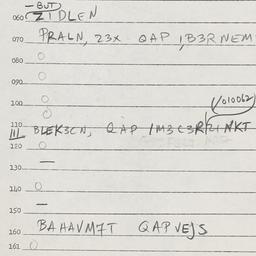 BUT
060 ZIDLEN
070 PRALN, 23X QAP ,B3RNEM
080
090
100
(010062)
110
III BLEK3CN, QAP /M3C3R/21NKT
120
130
140
150
160 BAHAVM7T QAPVEJS
161